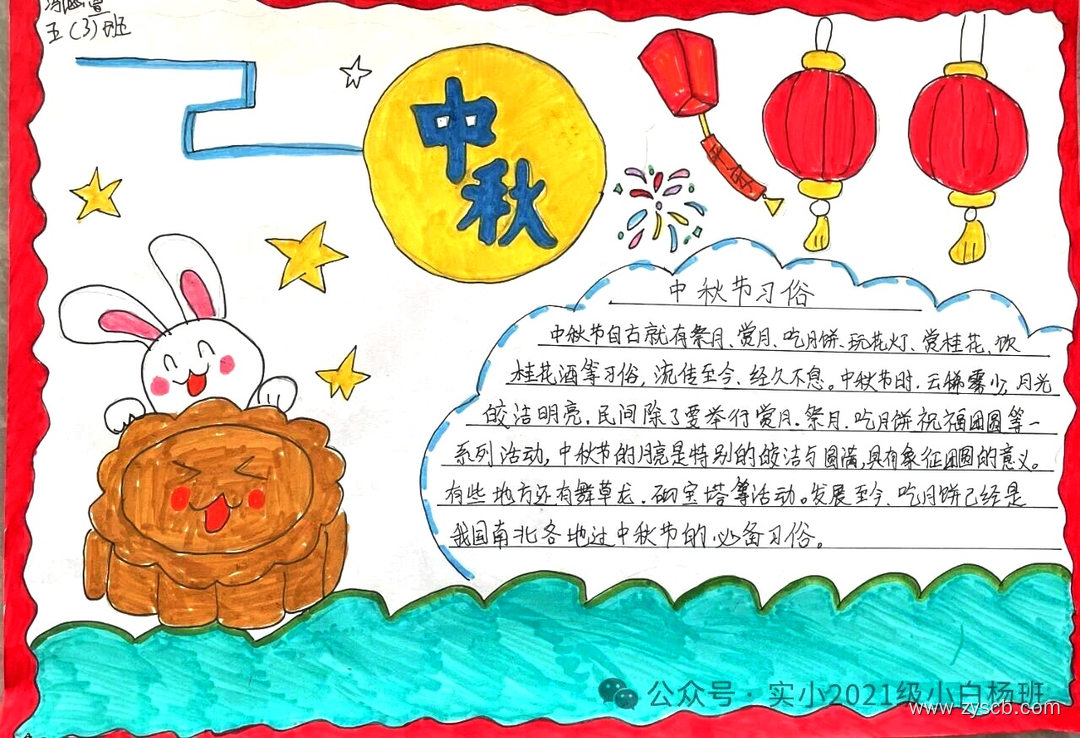 五(3)班
中秋
中秋节习俗
中秋节自古就有祭月、赏月、吃月饼、玩花灯、赏桂花、饮
桂花酒等习俗,流传至今,经久不息。中秋节时,云稀雾少,月光
皎洁明亮,民间除了要举行赏月、祭月、吃月饼祝福团圆等一
系列活动,中秋节的月亮是特别的皎洁与圆满,具有象征团圆的意义。
有些地方还有舞草龙、砌宝塔等活动。发展至今,吃月饼已经是
我国南北各地过中秋节的必备习俗。
公众号·实小2021级小白杨班
www.zyscb.com